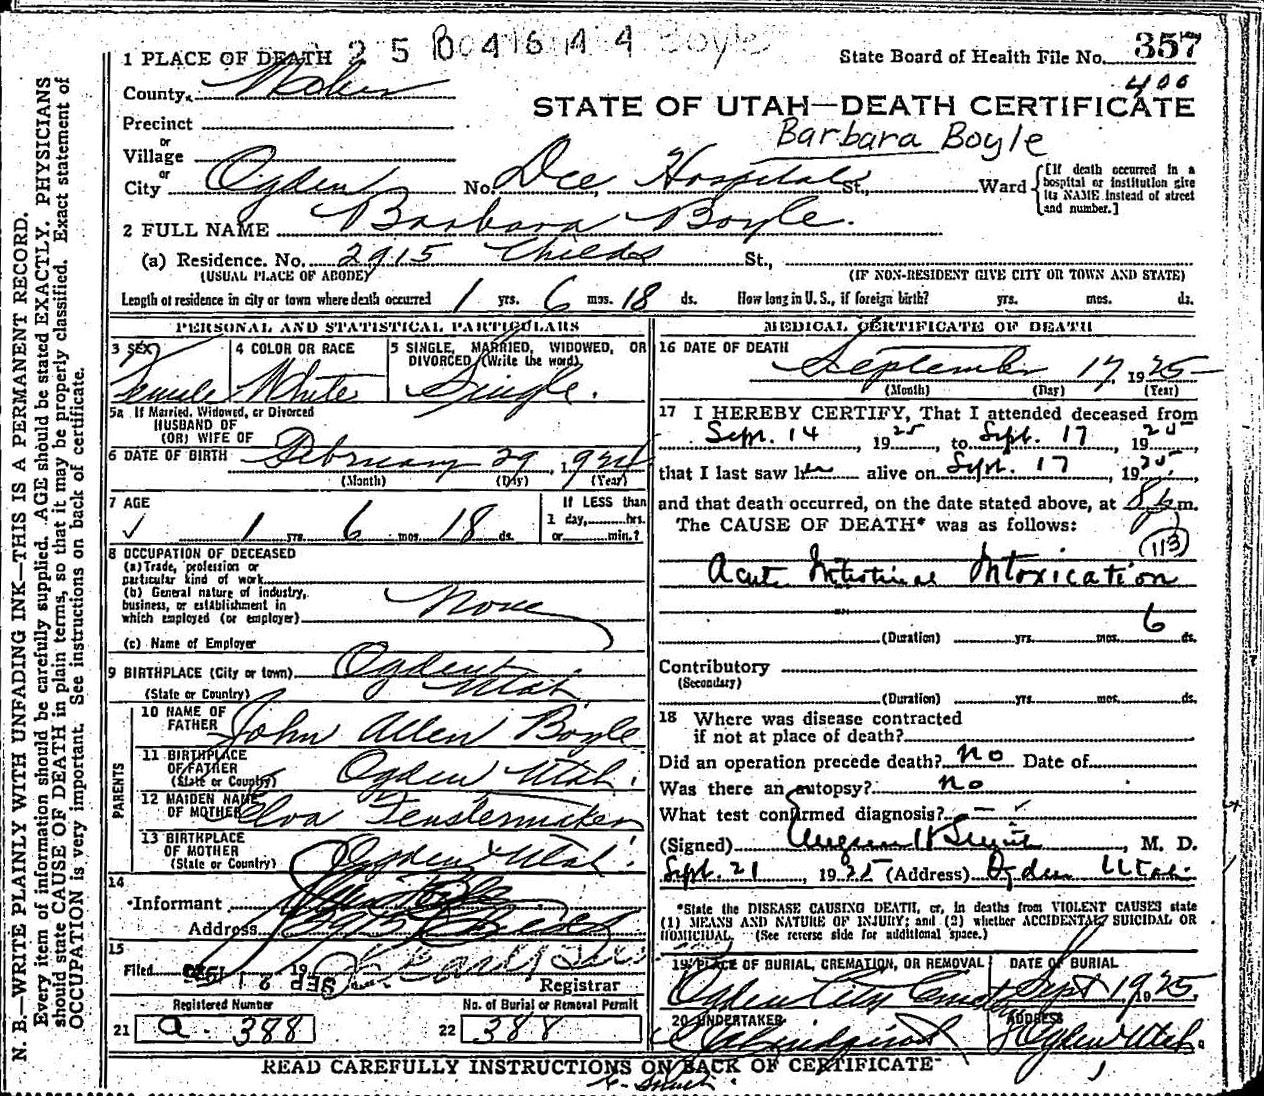 1 PLACE OF DEATH 2 5 0 4 6 4 4 Boyle
State Board of Health File No. 357
400
County Weber
STATE OF UTAH—DEATH CERTIFICATE
Barbara Boyle
Precinct
or
Village
or
City Ogden No. Dee Hospital St., Ward
[If death occurred in a
hospital or institution give
its NAME instead of street
and number.]
2 FULL NAME Barbara Boyle.
(a) Residence. No. 2915 Childs St.,
(USUAL PLACE OF ABODE) (IF NON-RESIDENT GIVE CITY OR TOWN AND STATE)
Length of residence in city or town where death occurred 1 yrs. 6 mos. 18 ds. How long in U. S., if foreign birth? yrs. mos. ds.
PERSONAL AND STATISTICAL PARTICULARS
3 SEX Female
4 COLOR OR RACE White
5 SINGLE, MARRIED, WIDOWED, OR
DIVORCED (Write the word)
Single.
5a If Married, Widowed, or Divorced
HUSBAND OF
(OR) WIFE OF
6 DATE OF BIRTH February 29, 1924
(Month) (Day) (Year)
7 AGE
1 yrs. 6 mos. 18 ds.
If LESS than
1 day, hrs.
or min.?
8 OCCUPATION OF DECEASED
(a) Trade, profession or
particular kind of work
(b) General nature of industry,
business, or establishment in
which employed (or employer)
None
(c) Name of Employer
9 BIRTHPLACE (City or town) Ogden
(State or Country) Utah
PARENTS
10 NAME OF
FATHER John Allen Boyle
11 BIRTHPLACE
OF FATHER
(State or Country) Ogden Utah.
12 MAIDEN NAME
OF MOTHER Elva Fenstermaker
13 BIRTHPLACE
OF MOTHER
(State or Country) Ogden Utah.
14
Informant
Address Childs
15
Filed SEP 21 19
Registrar
Registered Number
21 a. 388
No. of Burial or Removal Permit
22 388
MEDICAL CERTIFICATE OF DEATH
16 DATE OF DEATH
September 17 1925
(Month) (Day) (Year)
17 I HEREBY CERTIFY, That I attended deceased from
Sept. 14, 1925, to Sept. 17, 1925,
that I last saw her alive on Sept. 17, 1925,
and that death occurred, on the date stated above, at 8 p.m.
The CAUSE OF DEATH* was as follows:
(113)
Acute Intestinal Intoxication
6
(Duration) yrs. mos. ds.
Contributory
(Secondary)
(Duration) yrs. mos. ds.
18 Where was disease contracted
if not at place of death?
Did an operation precede death? No Date of
Was there an autopsy? No
What test confirmed diagnosis? —
(Signed) , M. D.
Sept. 21, 1925 (Address) Ogden Utah.
*State the DISEASE CAUSING DEATH, or, in deaths from VIOLENT CAUSES state
(1) MEANS AND NATURE OF INJURY; and (2) whether ACCIDENTAL, SUICIDAL OR
HOMICIDAL. (See reverse side for additional space.)
19 PLACE OF BURIAL, CREMATION, OR REMOVAL
Ogden City
DATE OF BURIAL
Sept 19 1925.
20 UNDERTAKER
ADDRESS
Ogden Utah.
READ CAREFULLY INSTRUCTIONS ON BACK OF CERTIFICATE
N. B.—WRITE PLAINLY WITH UNFADING INK—THIS IS A PERMANENT RECORD.
Every item of information should be carefully supplied. AGE should be stated EXACTLY. PHYSICIANS
should state CAUSE OF DEATH in plain terms, so that it may be properly classified. Exact statement of
OCCUPATION is very important. See instructions on back of certificate.